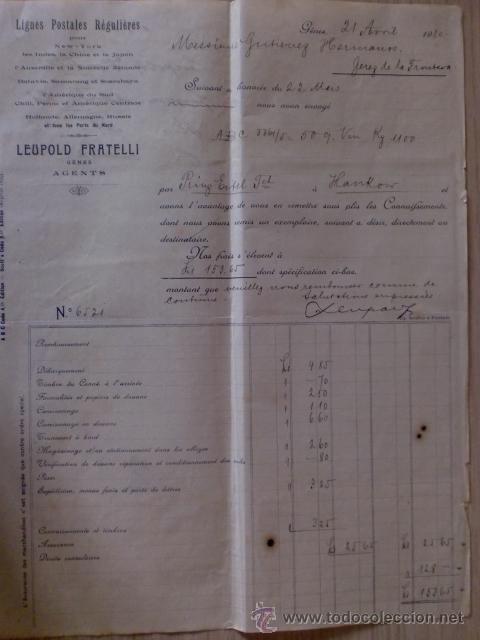 Lignes Postales Régulières
pour
New-York
les Indes, la Chine et le Japon
l'Australie et la Nouvelle Zélande
Batavia, Samarang et Soerabaya
l'Amérique du Sud
Chili, Perou et Amérique Centrale
Hollande, Allemagne, Russie
et tous les Ports du Nord
LEUPOLD FRATELLI
GÊNES
AGENTS
Gênes, 21 Avril
Messieurs Gutierrez Hermanos,
Jerez de la Frontera
Suivant honorée du 22 Mars
nous avons envoyé
ABC 50 Vin Kg 1100
par à Hankow et
avons l'avantage de vous en remettre sous plis les Connaissements,
dont nous avons remis un exemplaire, suivant a désir, directement au
destinataire.
Nos frais s'élèvent à
153.65 dont spécification ci-bas,
montant que veuillez nous rembourser comme de
coutume. Salutations empressées
N.º 6521
Remboursement
Débarquement 4.85
Timbre du Conné à l'arrivée -70
Formalités et papiers de douane 2.50
Camionnage 1.10
Camionnage en douane 6.60
Transport à bord
Magasinage et/ou stationnement dans les alléges 2.60
Vérification de douane réparation et conditionnement des colis -80
Poids
Expédition, menus frais et ports de lettres 3.25
Connaissements et timbres 3.25
Assurance 25.65 25.65
Droits consulaires 128 -
153.65
L'Assurance des marchandises n'est soignée que contre ordre spécial.
A B C Code 4th Edition
todocoleccion
www.todocoleccion.net